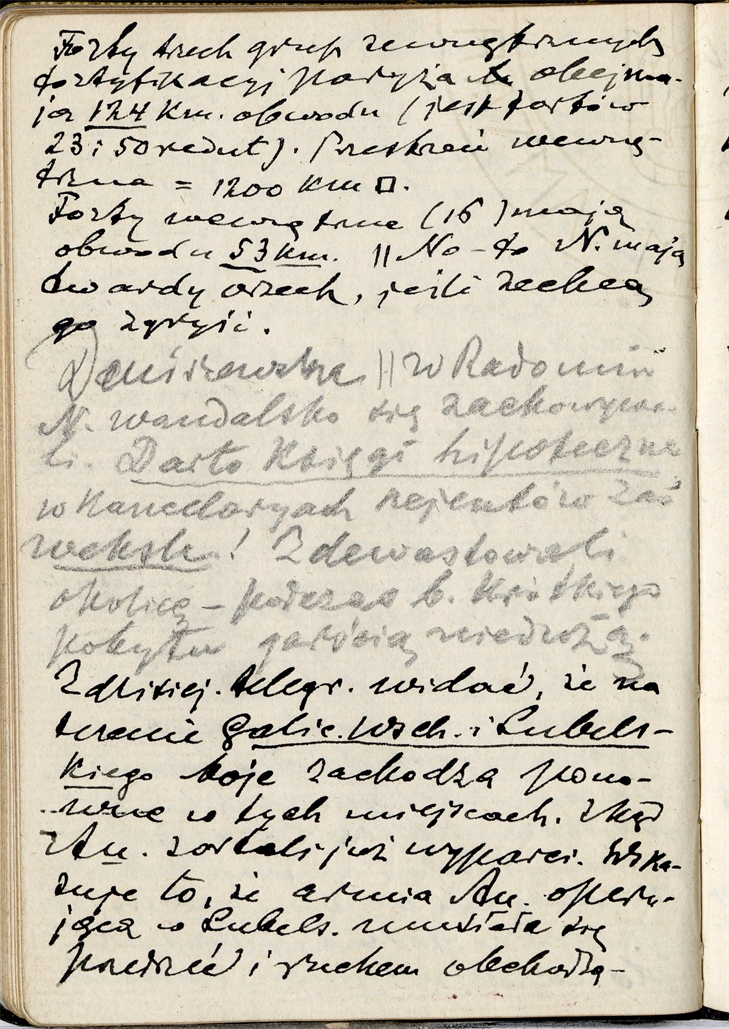 Forty trech grup zewnętrznych
fortyfikacyj paryża obejmu-
ją 124 Km. obwodu (jest fortów
23 i 50 redut). Przestrzeń wewnę-
trzna = 1200 Km □.
Forty wewnętrzne (16) mają
obwodu 53 km. || No-to N. mają
twardy orzech, jeśli zechcą
go zgryść.
|| w Radomiu
N. wandalsko się zachowywa-
li. Darto Księgi hipoteczne
w Kancelaryach rejentów zaś
weksle! Zdewastowali
okolicę - podczas b. Krótkiego
pobytu
Z dzisiej. telegr. widać, że na
terenie Galic. Wsch. i Lubels-
kiego boje zachodzą pono-
wne w tych miejscach. Zkąd
Au. zostali już wyparci. Wska-
zuje to, że armia Au. operu-
jąca w Lubels. musiała się
przedrzeć i ruchem obchodzą-